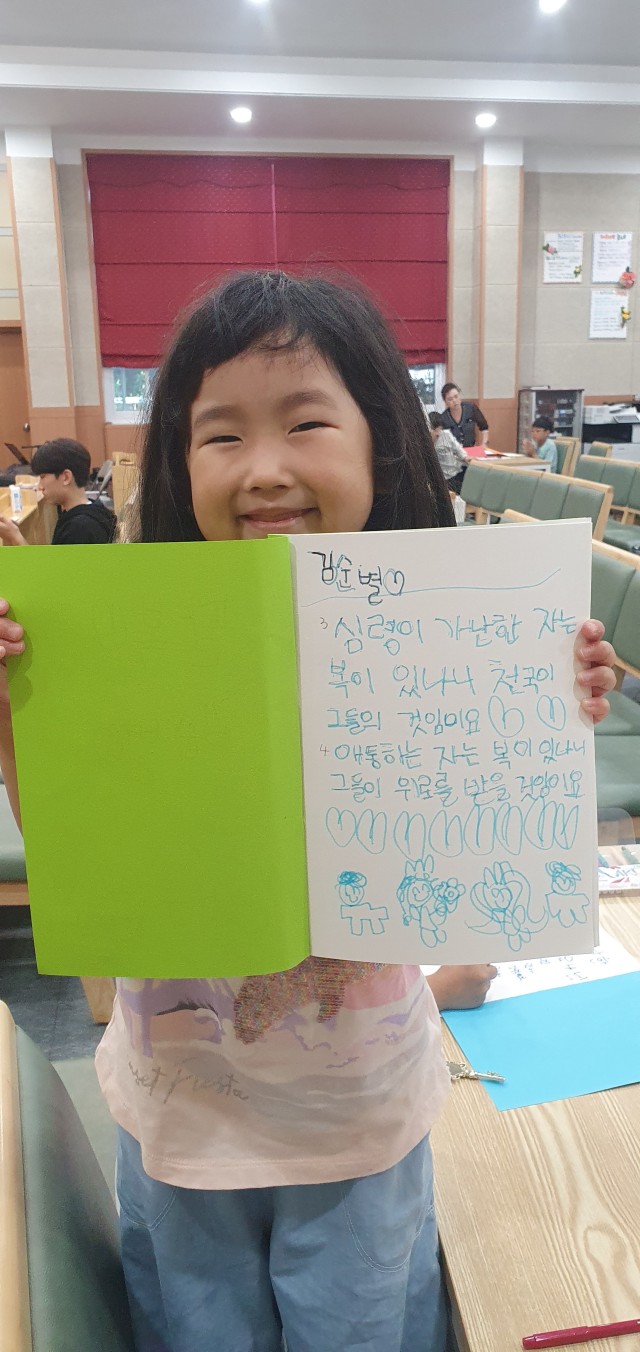 김순별
3 심령이 가난한 자는
복이 있나니 천국이
그들의 것임이요
4 애통하는 자는 복이 있나니
그들이 위로를 받을 것임이요
set Fiesta